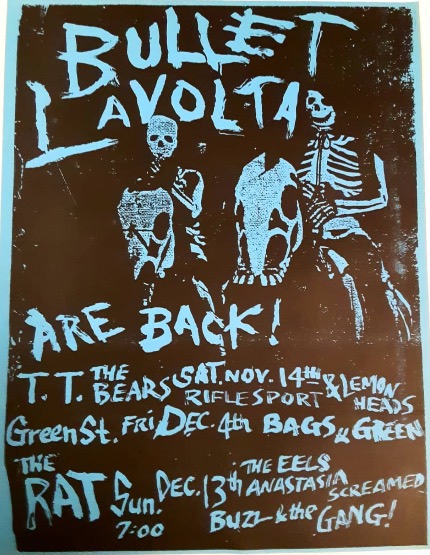 BULLET
LAVOLTA
ARE BACK!
T.T. THE BEARS SAT. NOV. 14th RIFLESPORT & LEMON HEADS
Green St. FRI DEC. 4th BAGS & GREEN
THE RAT Sun. DEC. 13th THE EELS ANASTASIA SCREAMED
7:00 BUZZ & the GANG!